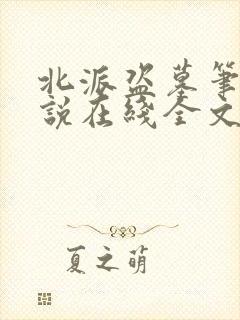 北派盗墓筆
說在綫全文
夏之萌